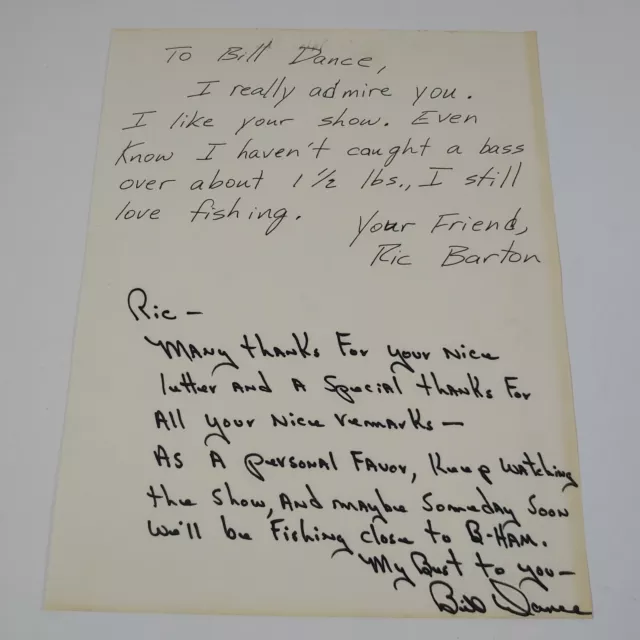 To Bill Dance,
I really admire you.
I like your show. Even
Know I haven't caught a bass
over about 1 1/2 lbs., I still
love fishing.
Your Friend,
Ric Barton
Ric -
Many thanks For your Nice
letter AND A Special thanks For
All your Nice remarks -
As A personal Favor, Keep watching
the show, AND maybe Someday Soon
We'll be Fishing close to B-HAM.
My Best to you -
Bill Dance